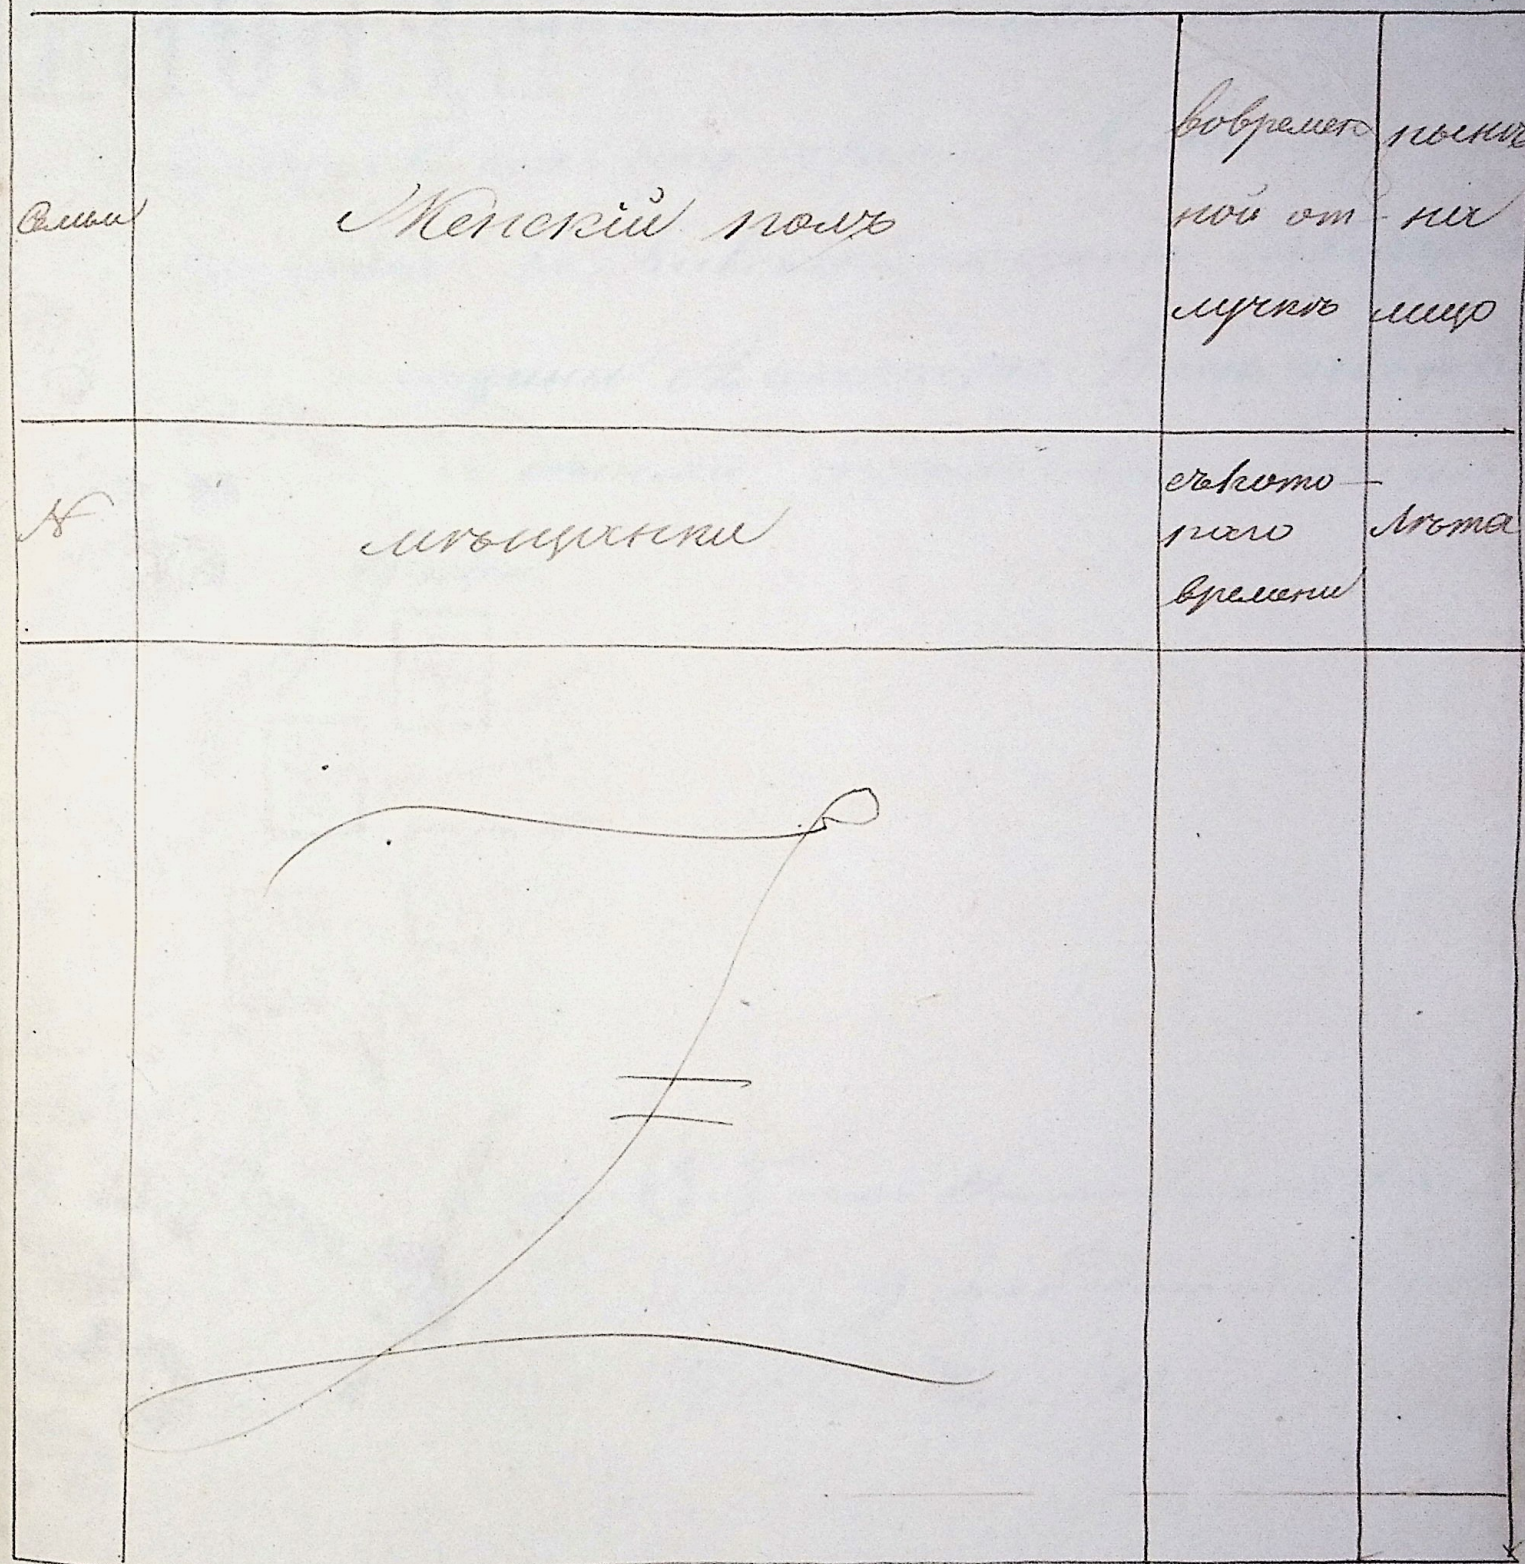 Семьи
Женскій полъ
вовремен
ной от
лучкѣ
нынѣ
на
лицо
N
мѣщанки
съкото
раго
времени
Лѣта